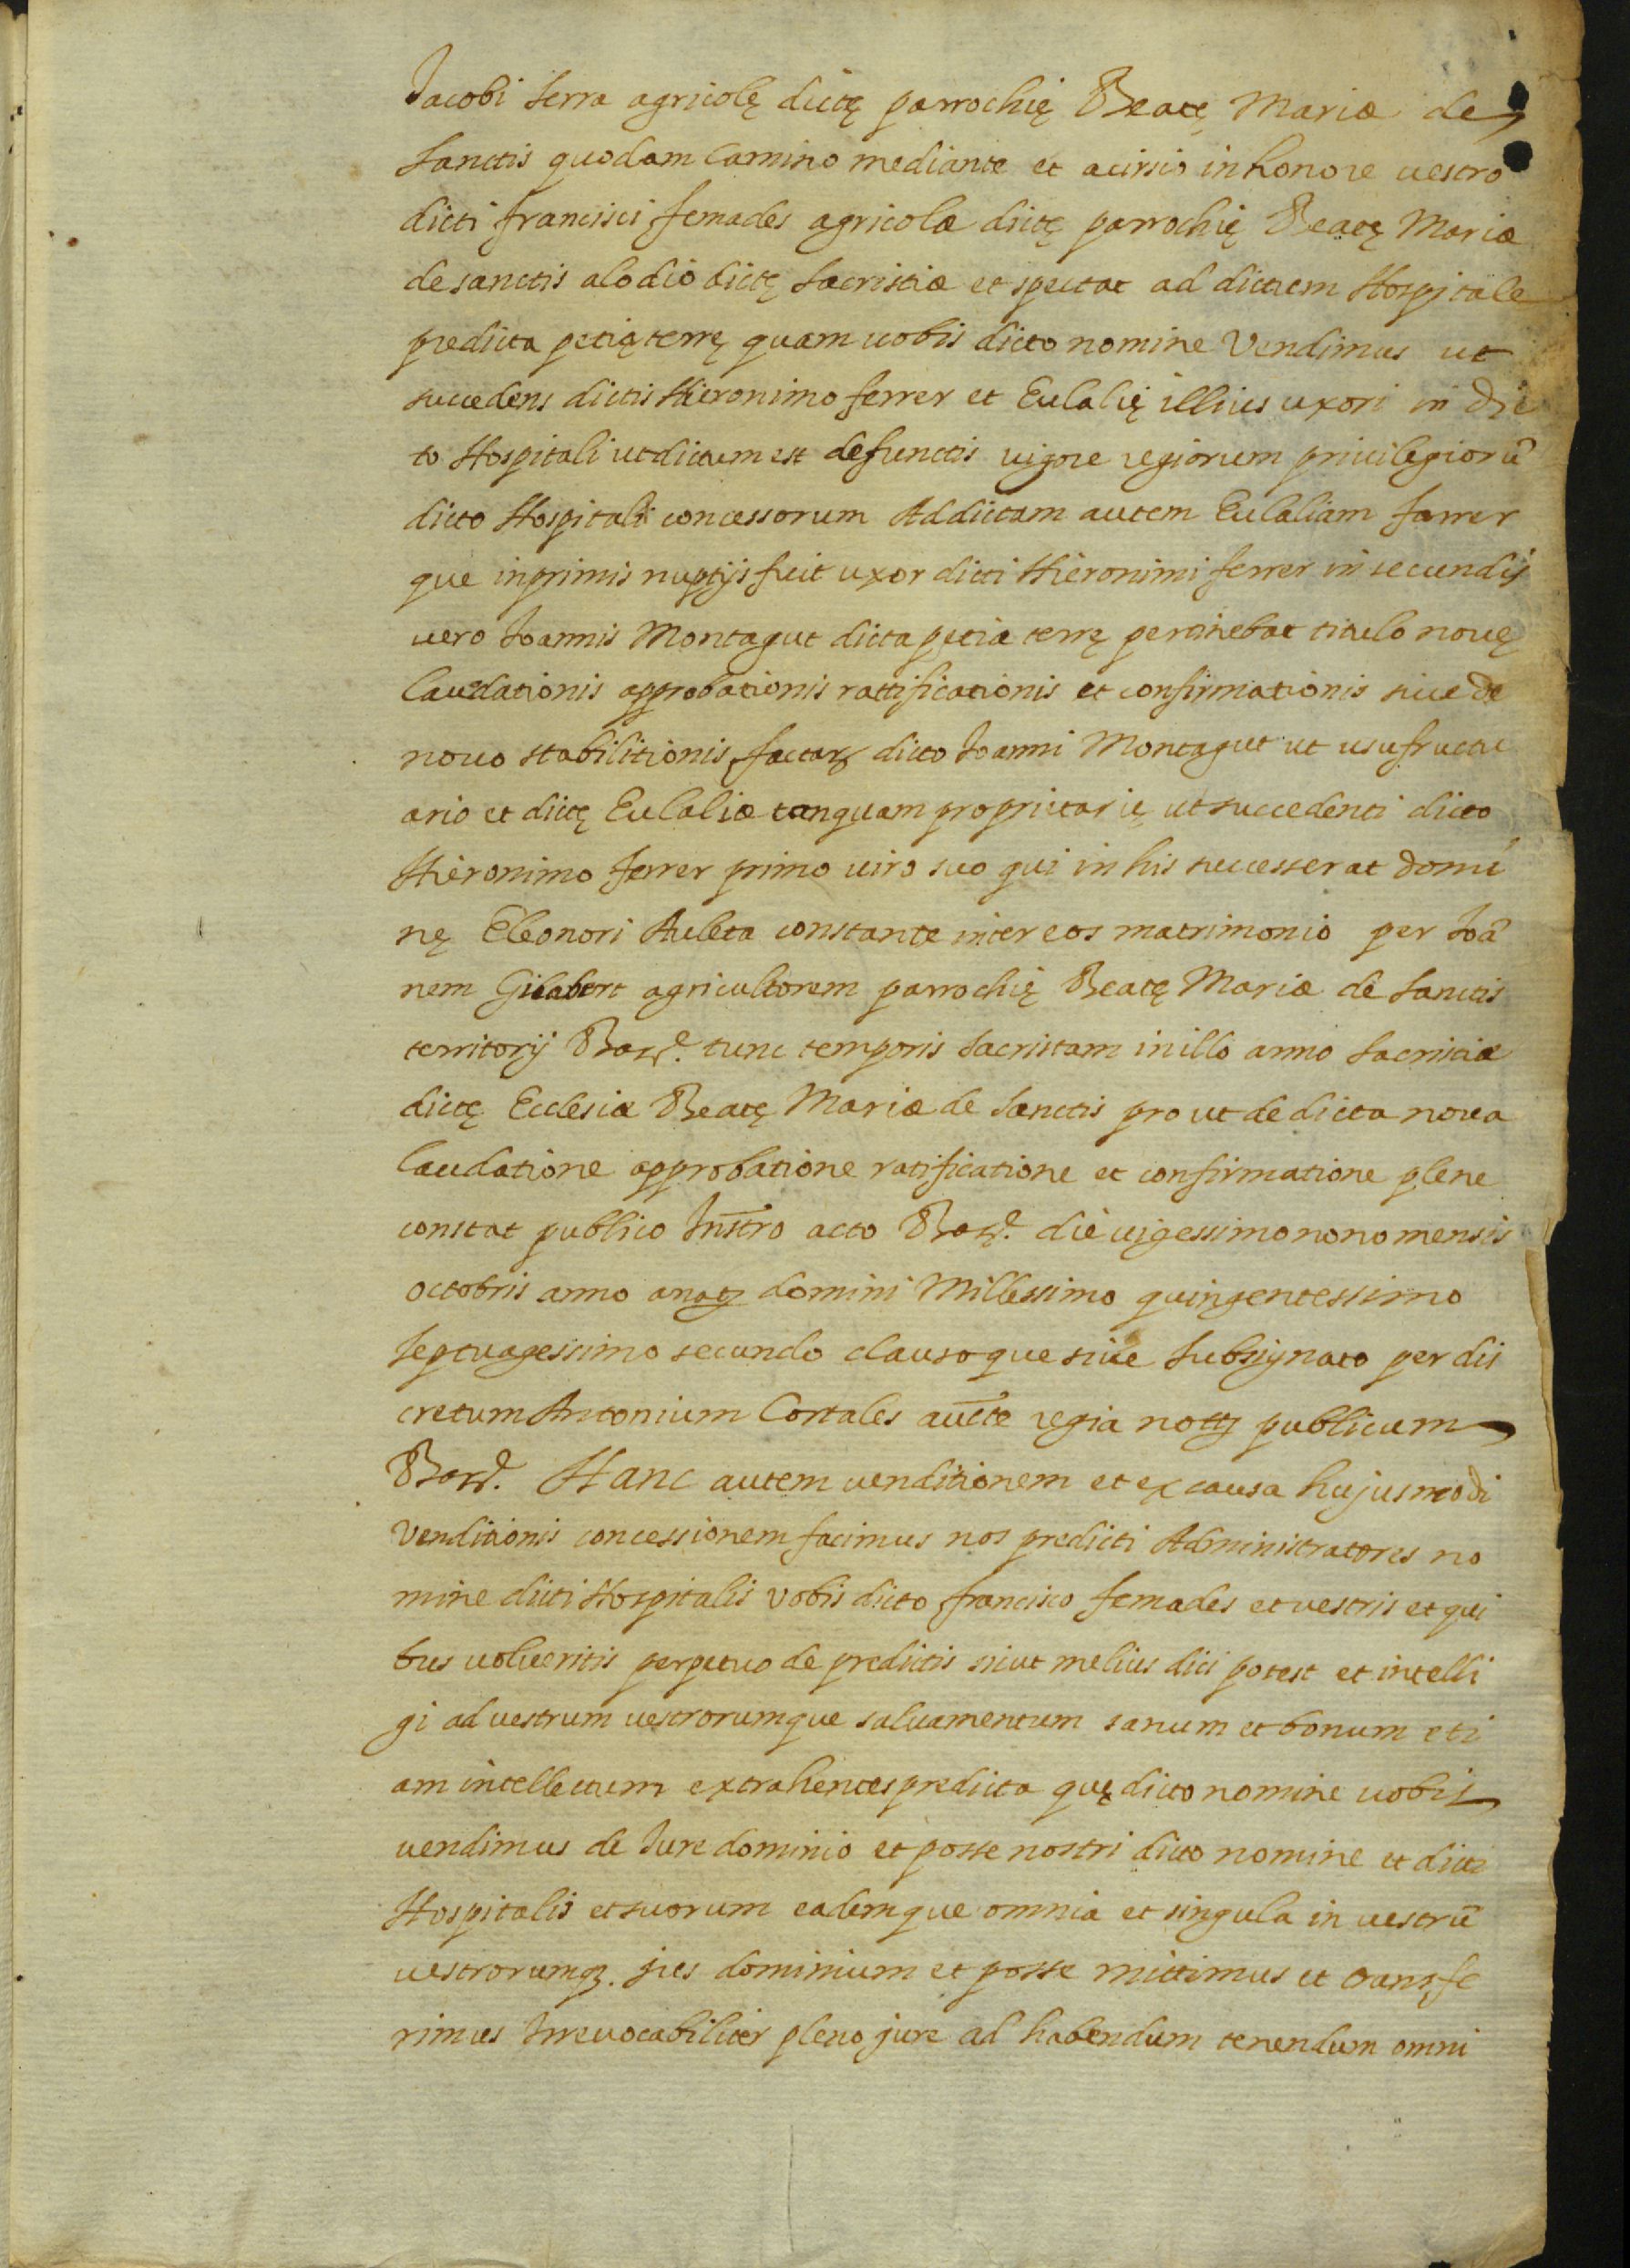 Jacobi Serra agricolę dictę parrochię Beatę Mariæ de
Sanctis quodam Camino mediante et acircio in honore vestro
dicti francisci femades agricolæ dictę parrochię Beatę Mariæ
de sanctis alodio dictę Sacristiæ et spectat ad dictum Hospitale
predicta petia terrę quam vobis dicto nomine Vendimus ut
succedens dictis Hieronimo ferrer et Eulalię illius uxori in dic
to Hospitali ut dictum est defunctis vigore regiorum privilegiorũ
dicto Hospitali concessorum Ad dictam autem Eulaliam farrer
que in primis nuptijs fuit uxor dicti Hieronimi ferrer in secundis
vero Joannis Montagut dicta petia terrę pertinebat titulo novę
Laudationis approbationis rattificationis et confirmationis sive de
novo stabilitionis factarꝝ dicto Joanni Montagut ut usufructu
ario et dictę Eulaliæ tanquam proprietarię ut succedenti dicto
Hieronimo ferrer primo viro suo qui in his successerat domi
nę Eleonori Auleta constante inter eos matrimonio per Joã
nem Gilabert agricultorem parrochię Beatę Mariæ de Sanctis
territorij Barñe. tunc temporis Sacristam in illo anno Sacristiæ
dictę Ecclesiæ Beatę Mariæ de Sanctis pro ut de dicta nova
Laudatione approbatione ratificatione et confirmatione plene
constat publico Instro acto Barñe. die vigessimo nono mensis
octobris anno anatꝫ domini Millessimo quingentessimo
septuagessimo secundo clausoque sive Subsignato per dis
cretum Antonium Cortales aucte regia nottꝫ publicum
Barñe. Hanc autem venditionem et ex causa hujusmodi
Venditionis concessionem facimus nos predicti Administratores no
mine dicti Hospitalis vobis dicto francisco femades et vestris et qui
bus volueritis perpetuo de predictis sicut melius dici potest et intelli
gi ad vestrum vestrorumque salvamentum sanum et bonum eti
am intellectum extrahentes predicta quę dicto nomine vobis
vendimus de Jure dominio et posse nostri dicto nomine et dicti
Hospitalis et suorum eademque omnia et singula in vestrũ
vestrorumqꝫ. jus dominium et posse mittimus et transfe
rimus Irrevocabiliter pleno jure ad habendum tenendum omni